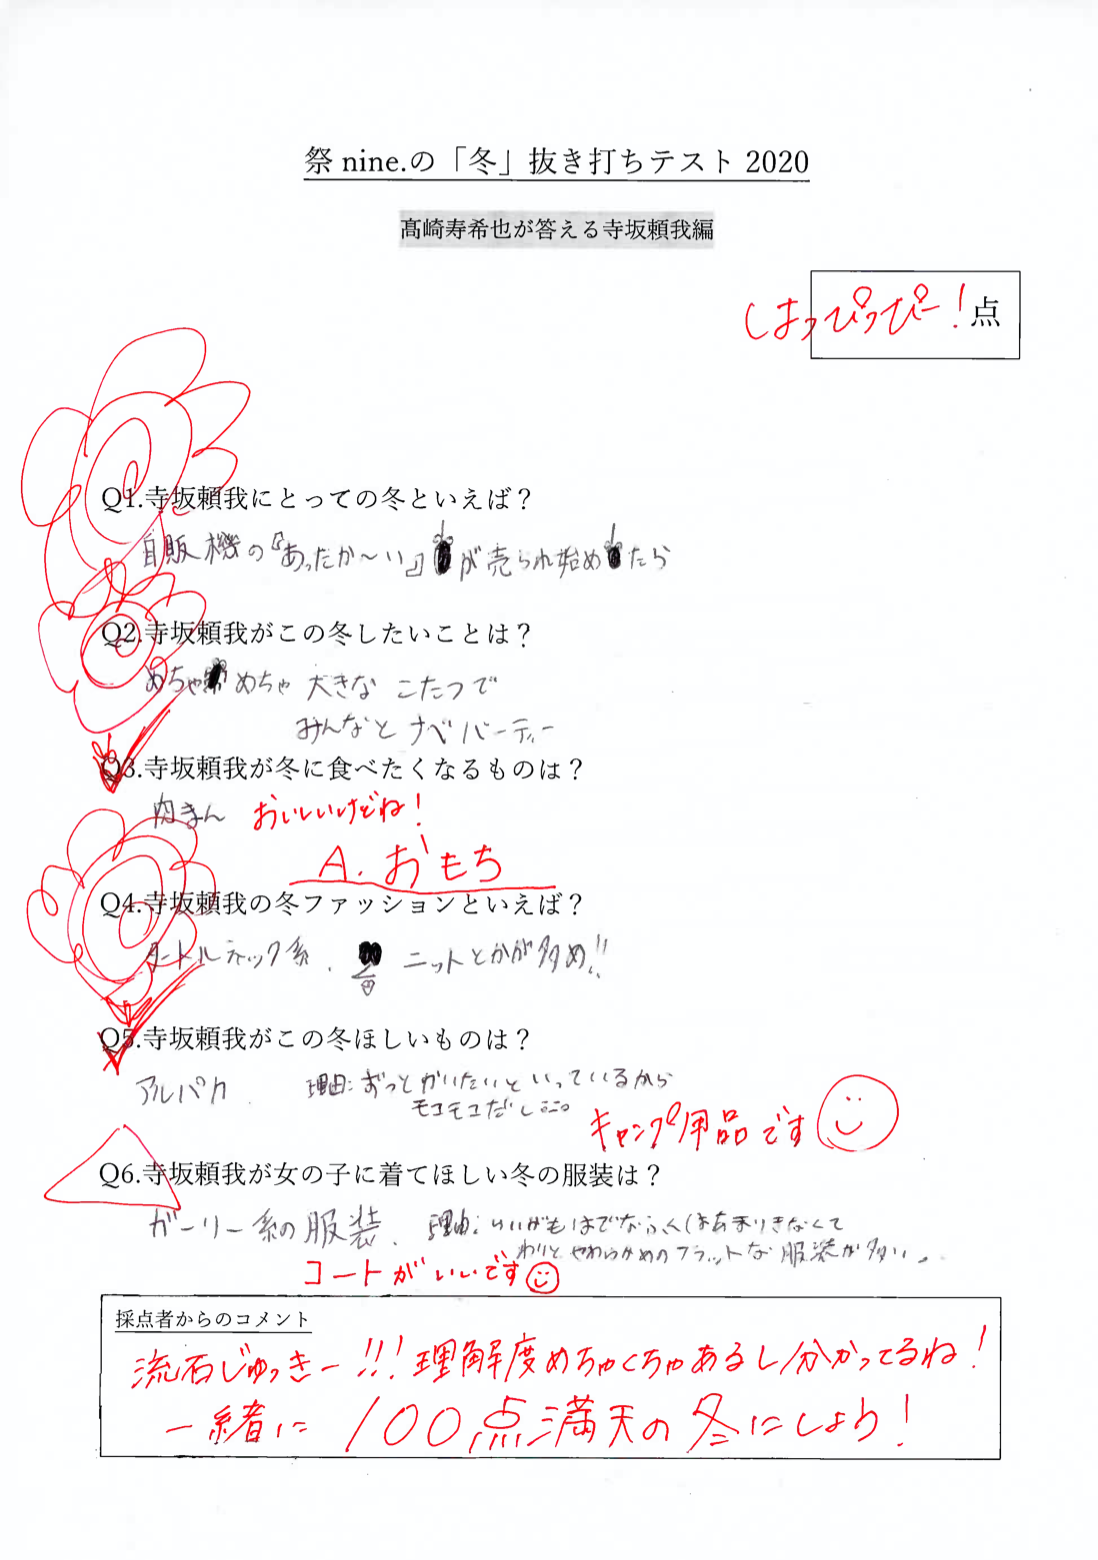 祭 nine.の「冬」抜き打ちテスト 2020
髙崎寿希也が答える寺坂頼我編
しはっぴっぴー!点
Q1.寺坂頼我にとっての冬といえば？
自販機の『あったか〜い』が売られ始めたら
Q2.寺坂頼我がこの冬したいことは？
めちゃめちゃ 大きな こたつで
みんなと ナベパーティー
Q3.寺坂頼我が冬に食べたくなるものは？
肉まん おいしいけどね!
A.おもち
Q4.寺坂頼我の冬ファッションといえば？
タートルネック系. ニットとかが多め!!
Q5.寺坂頼我がこの冬ほしいものは？
アルパカ. 理由:ずっとかいたいといっているから
モコモコだし
キャンプ用品です
Q6.寺坂頼我が女の子に着てほしい冬の服装は？
ガーリー系の服装. 理由:らいがもはでなふくはあまりきなくて
わりとやわらかめのフラットな服装が多い。
コートがいいです
採点者からのコメント
流石じゅっきー!!!理解度めちゃくちゃあるし分かってるね!
一緒に100点満天の冬にしよう!